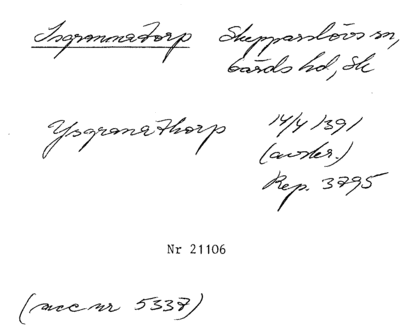 Isgrannatorp Skepparslövs sn,
Gärds hd, Sk
Ysgranathorp 14/4 1391
(avskr.)
Rep. 3795
Nr 21106
(acc nr 5337)